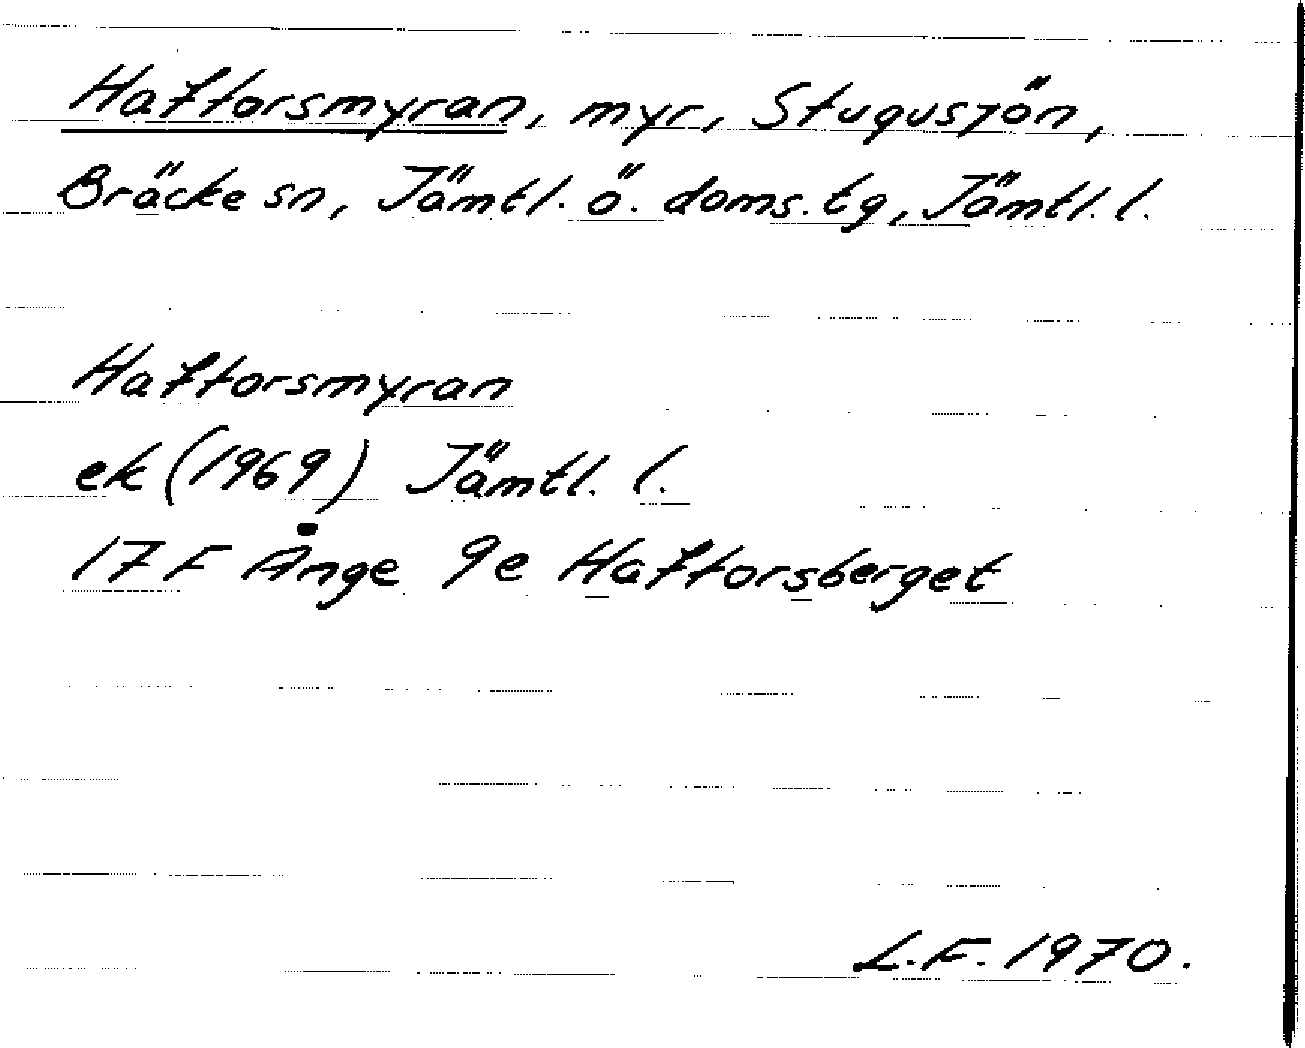 Haftorsmyran, myr, Stugusjön,
Bräcke sn, Jämtl. ö. doms. tg, Jämtl. l.
Haftorsmyran
ek (1969) Jämtl. l.
17 F Ånge 9e Haftorsberget
L.F. 1970.